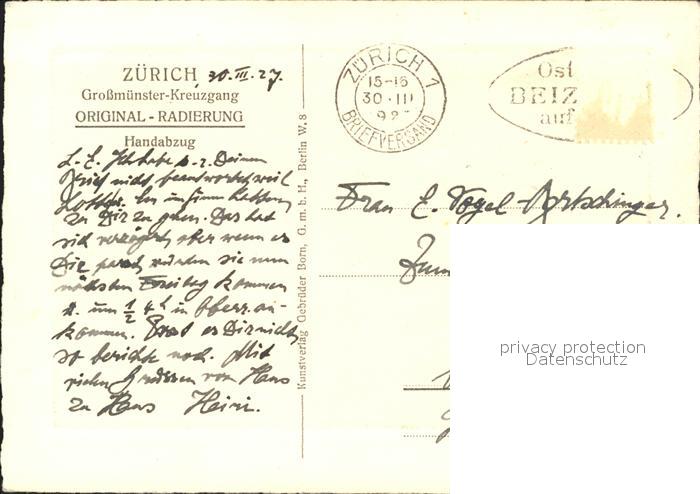 ZÜRICH 30. III. 27.
Großmünster-Kreuzgang
ORIGINAL - RADIERUNG
Handabzug
L. E. Ich habe Deinen
nicht beantwortet weil
im Sinn hatten
zu Dir zu gehen. Das hat
sich verzögert, aber wenn es
Dir passt würden sie nun
nächsten Freitag kommen
u. um ½ 4 h in Oberr. an-
kommen. Passt es Dir nicht,
so berichte noch. Mit
vielen Grüssen von Haus
zu Haus Heini.
Kunstverlag Gebrüder Born, G. m. b. H., Berlin W. 8
ZÜRICH 1
15-16
30 · III
92
BRIEFVERSAND
Ost
BEIZ
auf
Frau E. Vogel-
privacy protection
Datenschutz